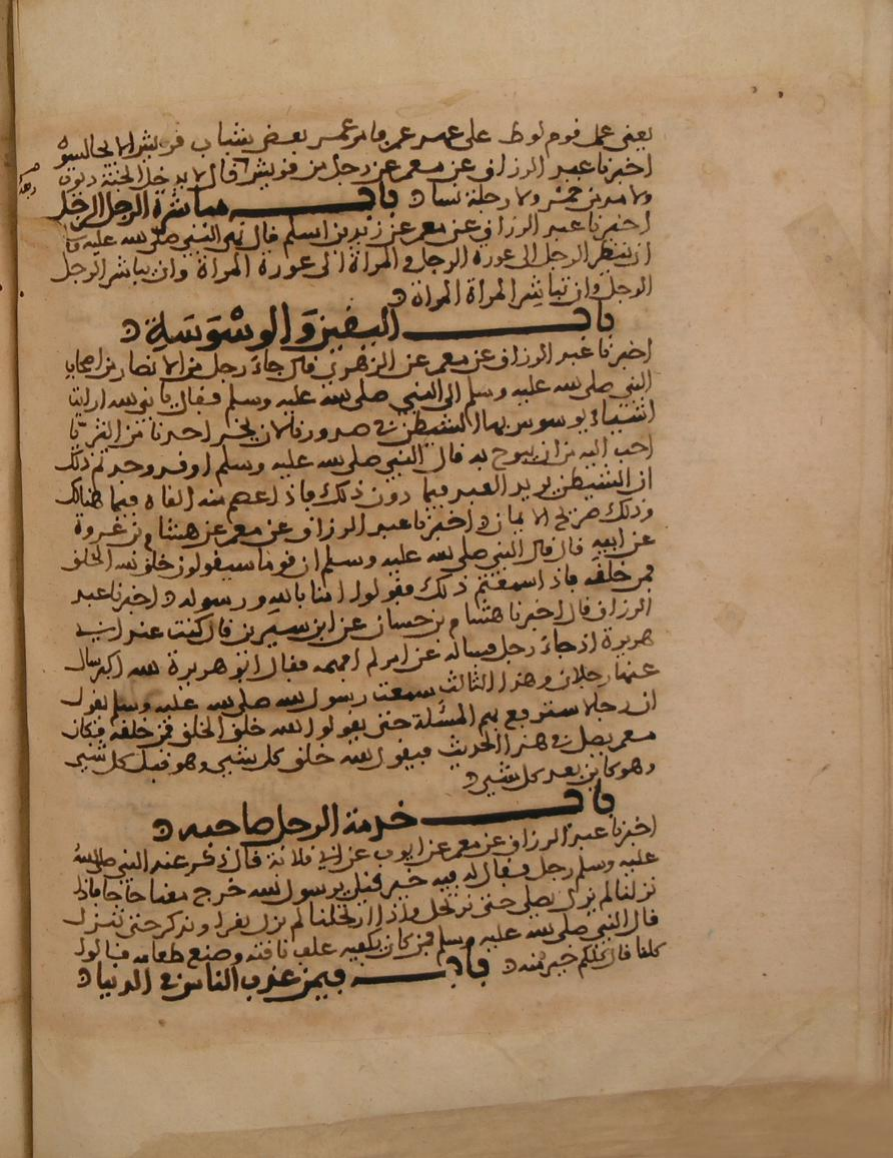 يعني عمل قوم لوط على عهد عمر فامر عمر بعض شباب قريش الا يجالسوه
اخبرنا عبد الرزاق عن معمر عن رجل من قريش قال لا يدخل الجنة ديوث
ولا مدمن خمر ولا رجلة نسا باب مباشرة الرجل الرجل
اخبرنا عبد الرزاق عن معمر عن زيد بن اسلم قال نهى النبي صلى الله عليه
ان ينظر الرجل الى عورة الرجل و المراة الى عورة المراة وان يباشر الرجل
الرجل وان تباشر المراة المراة
باب اليقين وَالوسْوَسَةِ
اخبرنا عبد الرزاق عن معمر عن الزهري قال جاء رجل من الانصار من اصحاب
النبي صلى الله عليه وسلم الى النبي صلى الله عليه وسلم فقال يا نبي الله ارايت
اشياء يوسوس بها الشيطن في صدورنا لان يخر احدنا من الثريا
احب اليه من ان يبوح به قال النبي صلى الله عليه وسلم اوقد وجدتم ذلك
ان الشيطن يريد العبد فيما دون ذلك فاذا عصم منه القاه فيما هنالك
وذلك صريح الايمان اخبرنا عبد الرزاق عن معمر عن هشام بن عروة
عن ابيه قال قال النبي صلى الله عليه وسلم ان قوما سيقولون خلق الله الخلق
فمن خلقه فاذا سمعتم ذلك فقولوا امنا بالله ورسوله اخبرنا عبد
الرزاق قال اخبرنا هشام بن حسان عن ابن سيرين قال كنت عند ابي
هريرة اذ جاءه رجل فساله عن امر لم افهمه فقال ابو هريرة الله اكبر سال
عنها رجلان وهذا الثالث سمعت رسول الله صلى الله عليه وسلم يقول
ان رجالا سترتفع بهم المسئلة حتى يقولوا الله خلق الخلق فمن خلقه فكان
معمر يصل في هذا الحديث فيقول الله خلق كل شيى وهو قبل كل شيى
وهو كاين بعد كل شيى
باب خدمة الرجل صاحبه
اخبرنا عبد الرزاق عن معمر عن ايوب عن ابي قلابة قال ذكر عند النبي صلى الله
عليه وسلم رجل فقال له فيه خير قيل يرسول الله خرج معنا حاجا فاذا
نزلنا لم يزل يصلي حتى نرتحل واذا ارتحلنا لم يزل يقرا ويذكر حتى ننزل
قال النبي صلى الله عليه وسلم فمن كان يكفيه علف ناقته وصنع طعامه قالوا
كلنا قال كلكم خير منه باب فيمن عذب الناس في الدنيا